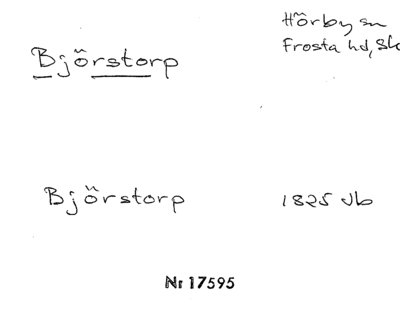 Hörby sn
Frosta hd, Sk
Björstorp
Björstorp
1825 Jb
Nr 17595